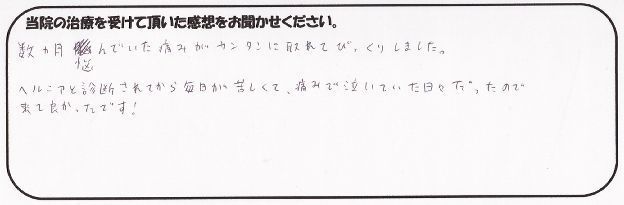 当院の治療を受けて頂いた感想をお聞かせください。
数ヵ月悩んでいた痛みがカンタンに取れてびっくりしました。
ヘルニアと診断されてから毎日が苦しくて、痛みで泣いていた日々だったので
来て良かったです!